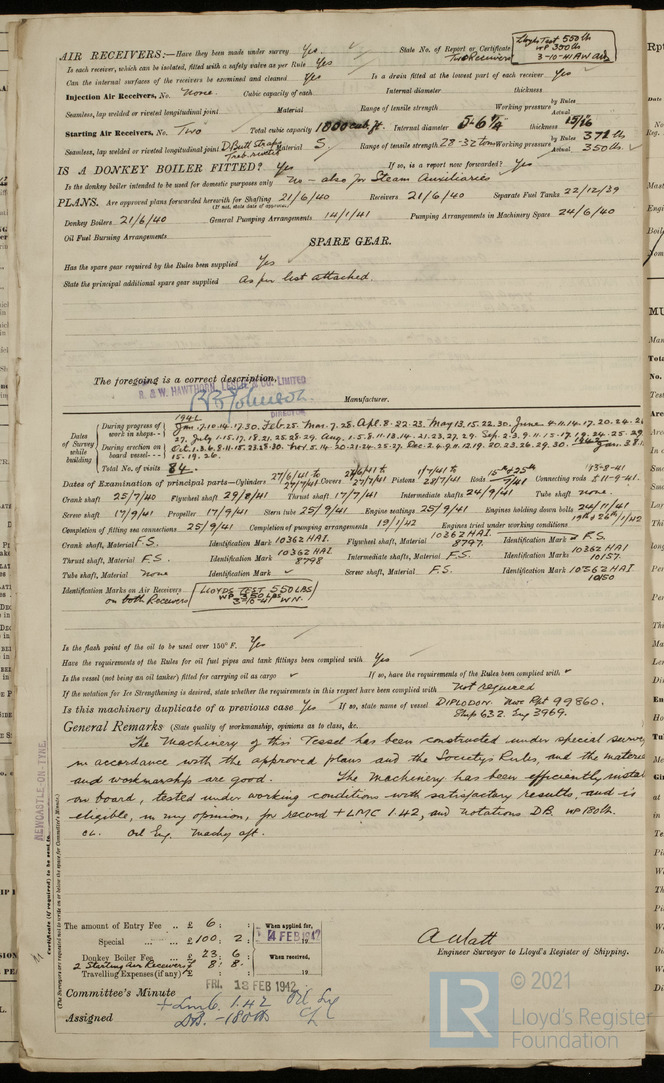 AIR RECEIVERS:—Have they been made under survey Yes. State No. of Report or Certificate Two Receivers
Lloyds Test 550 lb WP 350 lb 3-10-41
Is each receiver, which can be isolated, fitted with a safety valve as per Rule Yes
Can the internal surfaces of the receivers be examined and cleaned Yes Is a drain fitted at the lowest part of each receiver Yes
Injection Air Receivers, No. None. Cubic capacity of each Internal diameter thickness
Seamless, lap welded or riveted longitudinal joint Material Range of tensile strength Working pressure by Rules Actual
Starting Air Receivers, No. Two Total cubic capacity 1000 cub. ft. Internal diameter thickness 15/16
Seamless, lap welded or riveted longitudinal joint D Butt Straps Treb. riveted Material S. Range of tensile strength 28-32 tons Working pressure by Rules 372 lb. Actual 350 lb.
IS A DONKEY BOILER FITTED? Yes If so, is a report now forwarded? Yes
Is the donkey boiler intended to be used for domestic purposes only No – also for Steam Auxiliaries
PLANS. Are approved plans forwarded herewith for Shafting 21/6/40 Receivers 21/6/40 Separate Fuel Tanks 22/12/39
(If not, state date of approval)
Donkey Boilers 21/6/40 General Pumping Arrangements 14/1/41 Pumping Arrangements in Machinery Space 24/6/40
Oil Fuel Burning Arrangements
SPARE GEAR.
Has the spare gear required by the Rules been supplied Yes
State the principal additional spare gear supplied As per list attached.
The foregoing is a correct description,
R. & W. HAWTHORN, LESLIE & CO. LIMITED
DIRECTOR
Manufacturer.
1941
Dates of Survey while building
During progress of work in shops Jan. 7.10.14.17.30. Feb. 25. Mar. 7.28. Apl. 8.22.23. May 13.15.22.30. June 4.11.14.17.20.24.2
27. July 1.15.17.18.21.25.28.29. Aug. 1.5.8.11.13.14.21.23.27.29. Sep. 2.3.9.11.15.17.19.24.25.29
During erection on board vessel
1942
15.19.26.
Total No. of visits 84.
Dates of Examination of principal parts—Cylinders 27/6/41 to 27/7/41 Covers 27/6/41 to 27/7/41 Pistons 1/7/41 to 28/7/41 Rods 15th & 25th 7/41 Connecting rods
Crank shaft 25/7/40 Flywheel shaft 29/8/41 Thrust shaft 17/7/41 Intermediate shafts 24/9/41 Tube shaft none.
Screw shaft 17/9/41 Propeller 17/9/41 Stern tube 25/9/41 Engine seatings 25/9/41 Engines holding down bolts 24/11/41
Completion of fitting sea connections 25/9/41 Completion of pumping arrangements 19/1/42 Engines tried under working conditions 19th & 26th/1/42
Crank shaft, Material F.S. Identification Mark 10362 HAI Flywheel shaft, Material F.S. Identification Mark 10362 HAI 8797.
Thrust shaft, Material F.S. Identification Mark 10362 HAI 8798 Intermediate shafts, Material F.S. Identification Marks 10362 HAI 10157.
Tube shaft, Material none Identification Mark Screw shaft, Material F.S. Identification Mark 10362 HAI 10150
Identification Marks on Air Receivers on both Receivers LLOYDS TEST 550 LBS WP 350 LBS 3-10-41 W.N.
Is the flash point of the oil to be used over 150° F. Yes
Have the requirements of the Rules for oil fuel pipes and tank fittings been complied with Yes
Is the vessel (not being an oil tanker) fitted for carrying oil as cargo If so, have the requirements of the Rules been complied with
If the notation for Ice Strengthening is desired, state whether the requirements in this respect have been complied with Not required
Is this machinery duplicate of a previous case Yes If so, state name of vessel DIPLODON. Nwc Rpt 99860.
Ship 632. Eng 3969.
General Remarks (State quality of workmanship, opinions as to class, &c.
The Machinery of this Vessel has been constructed under special survey
in accordance with the approved plans and the Society's Rules, and the materia
and workmanship are good. The Machinery has been efficiently instal
on board, tested under working conditions with satisfactory results, and is
eligible, in my opinion, for record + LMC 1.42, and notations DB. WP 180 lb.
CL. Oil Eng. Machy aft.
NEWCASTLE-ON-TYNE.
Certificate (if required) to be sent to
(The Surveyors are requested not to write on or below the space for Committee's Minute.)
The amount of Entry Fee .. £ 6 : :
Special £ 100 : 2 :
Donkey Boiler Fee £ 23 : 6
2 Starting Air Receivers £ 8 : 8.
Travelling Expenses (if any) £
When applied for, 14 FEB 1942
When received, 19
A. Watt
Engineer Surveyor to Lloyd's Register of Shipping.
Committee's Minute FRI. 13 FEB 1942
Assigned + Lmc 1.42 Oil Eng
DB. -180 lb CL
© 2021
LR
Lloyd's Register
Foundation